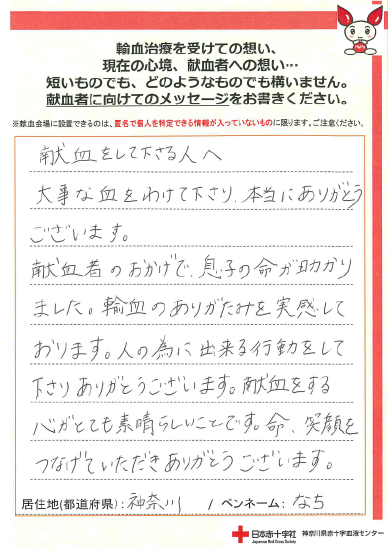 輸血治療を受けての想い、
現在の心境、献血者への想い…
短いものでも、どのようなものでも構いません。
献血者に向けてのメッセージをお書きください。
※献血会場に設置できるのは、匿名で個人を特定できる情報が入っていないものに限ります。ご注意ください。
献血をして下さる人へ
大事な血をわけて下さり、本当にありがとう
ございます。
献血者のおかげで、息子の命が助かり
ました。輸血のありがたみを実感して
おります。人の為に出来る行動をして
下さりありがとうございます。献血をする
心がとても素晴らしいことです。命、笑顔を
つなげていただきありがとうございます。
居住地(都道府県):神奈川 / ペンネーム:なち
日本赤十字社 神奈川県赤十字血液センター
Japanese Red Cross Society